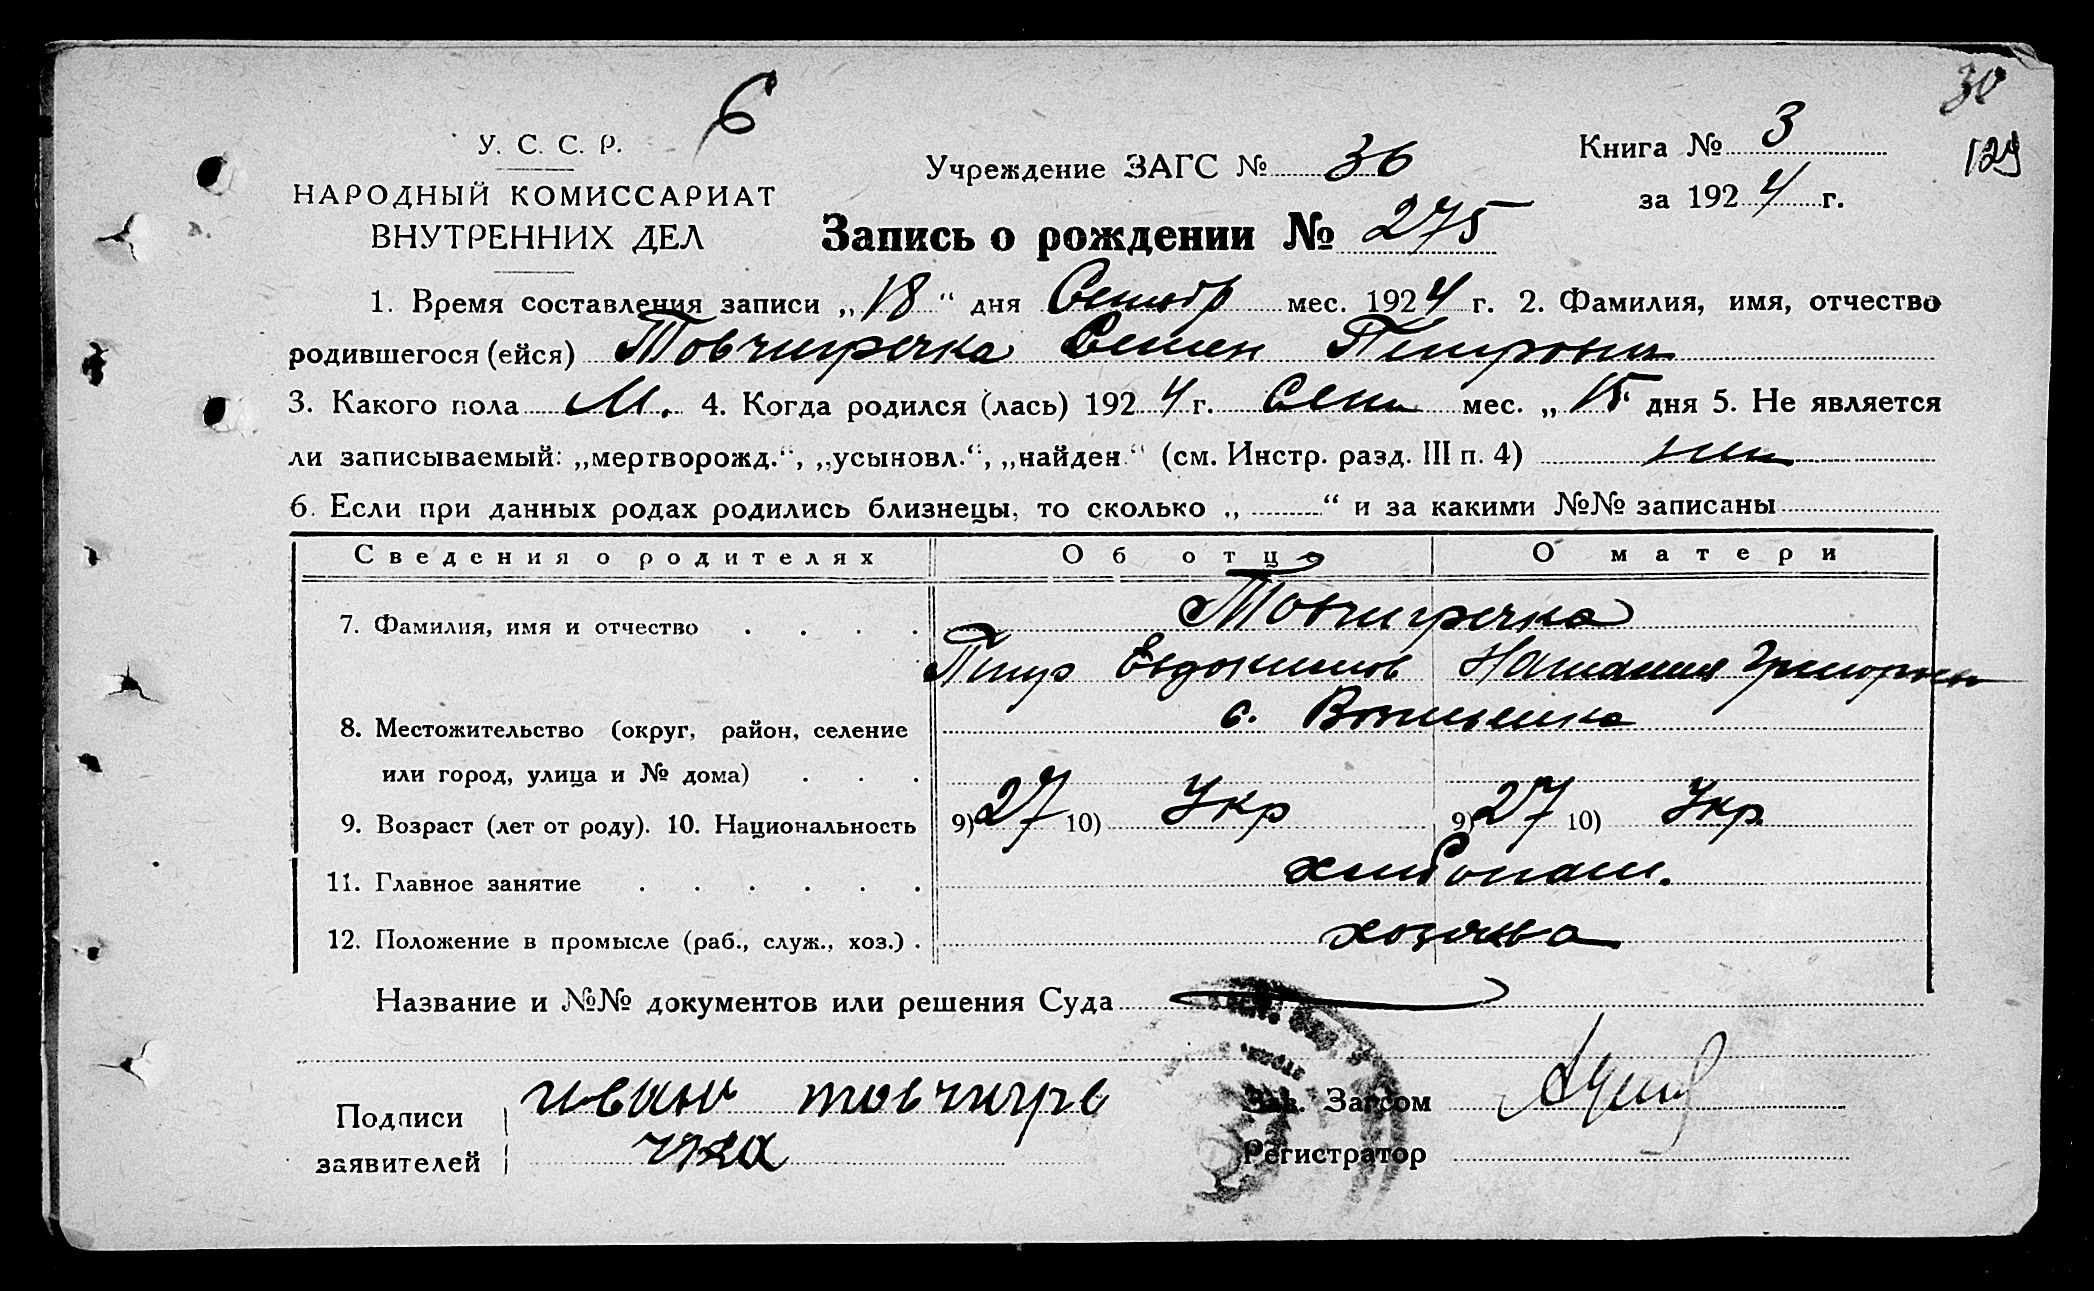 6
30
У. С. С. Р.
Учреждение ЗАГС № 36
Книга № 3
129
НАРОДНЫЙ КОМИССАРИАТ
за 1924 г.
ВНУТРЕННИХ ДЕЛ
Запись о рождении № 275
1. Время составления записи „18“ дня Сентябр мес. 1924 г. 2. Фамилия, имя, отчество
родившегося (ейся) Товчигречка Семен Петрович
3. Какого пола М. 4. Когда родился (лась) 1924 г. Сент мес. „15 дня 5. Не является
ли записываемый: „мертворожд.“, „усыновл.“, „найден.“ (см. Инстр. разд. III п. 4) нет
6. Если при данных родах родились близнецы, то сколько „ “ и за какими №№ записаны
Сведения о родителях Об отце О матери
7. Фамилия, имя и отчество Товчигречка
Петр Евдокимов Наталия Григорьев
8. Местожительство (округ, район, селение с.
или город, улица и № дома)
9. Возраст (лет от роду). 10. Национальность 9) 27 10) Укр 9) 27 10) Укр.
11. Главное занятие хлебопаш.
12. Положение в промысле (раб., служ., хоз.) хозяева
Название и №№ документов или решения Суда
Подписи иван товчигре
Зав. Загсом
заявителей чка
Регистратор